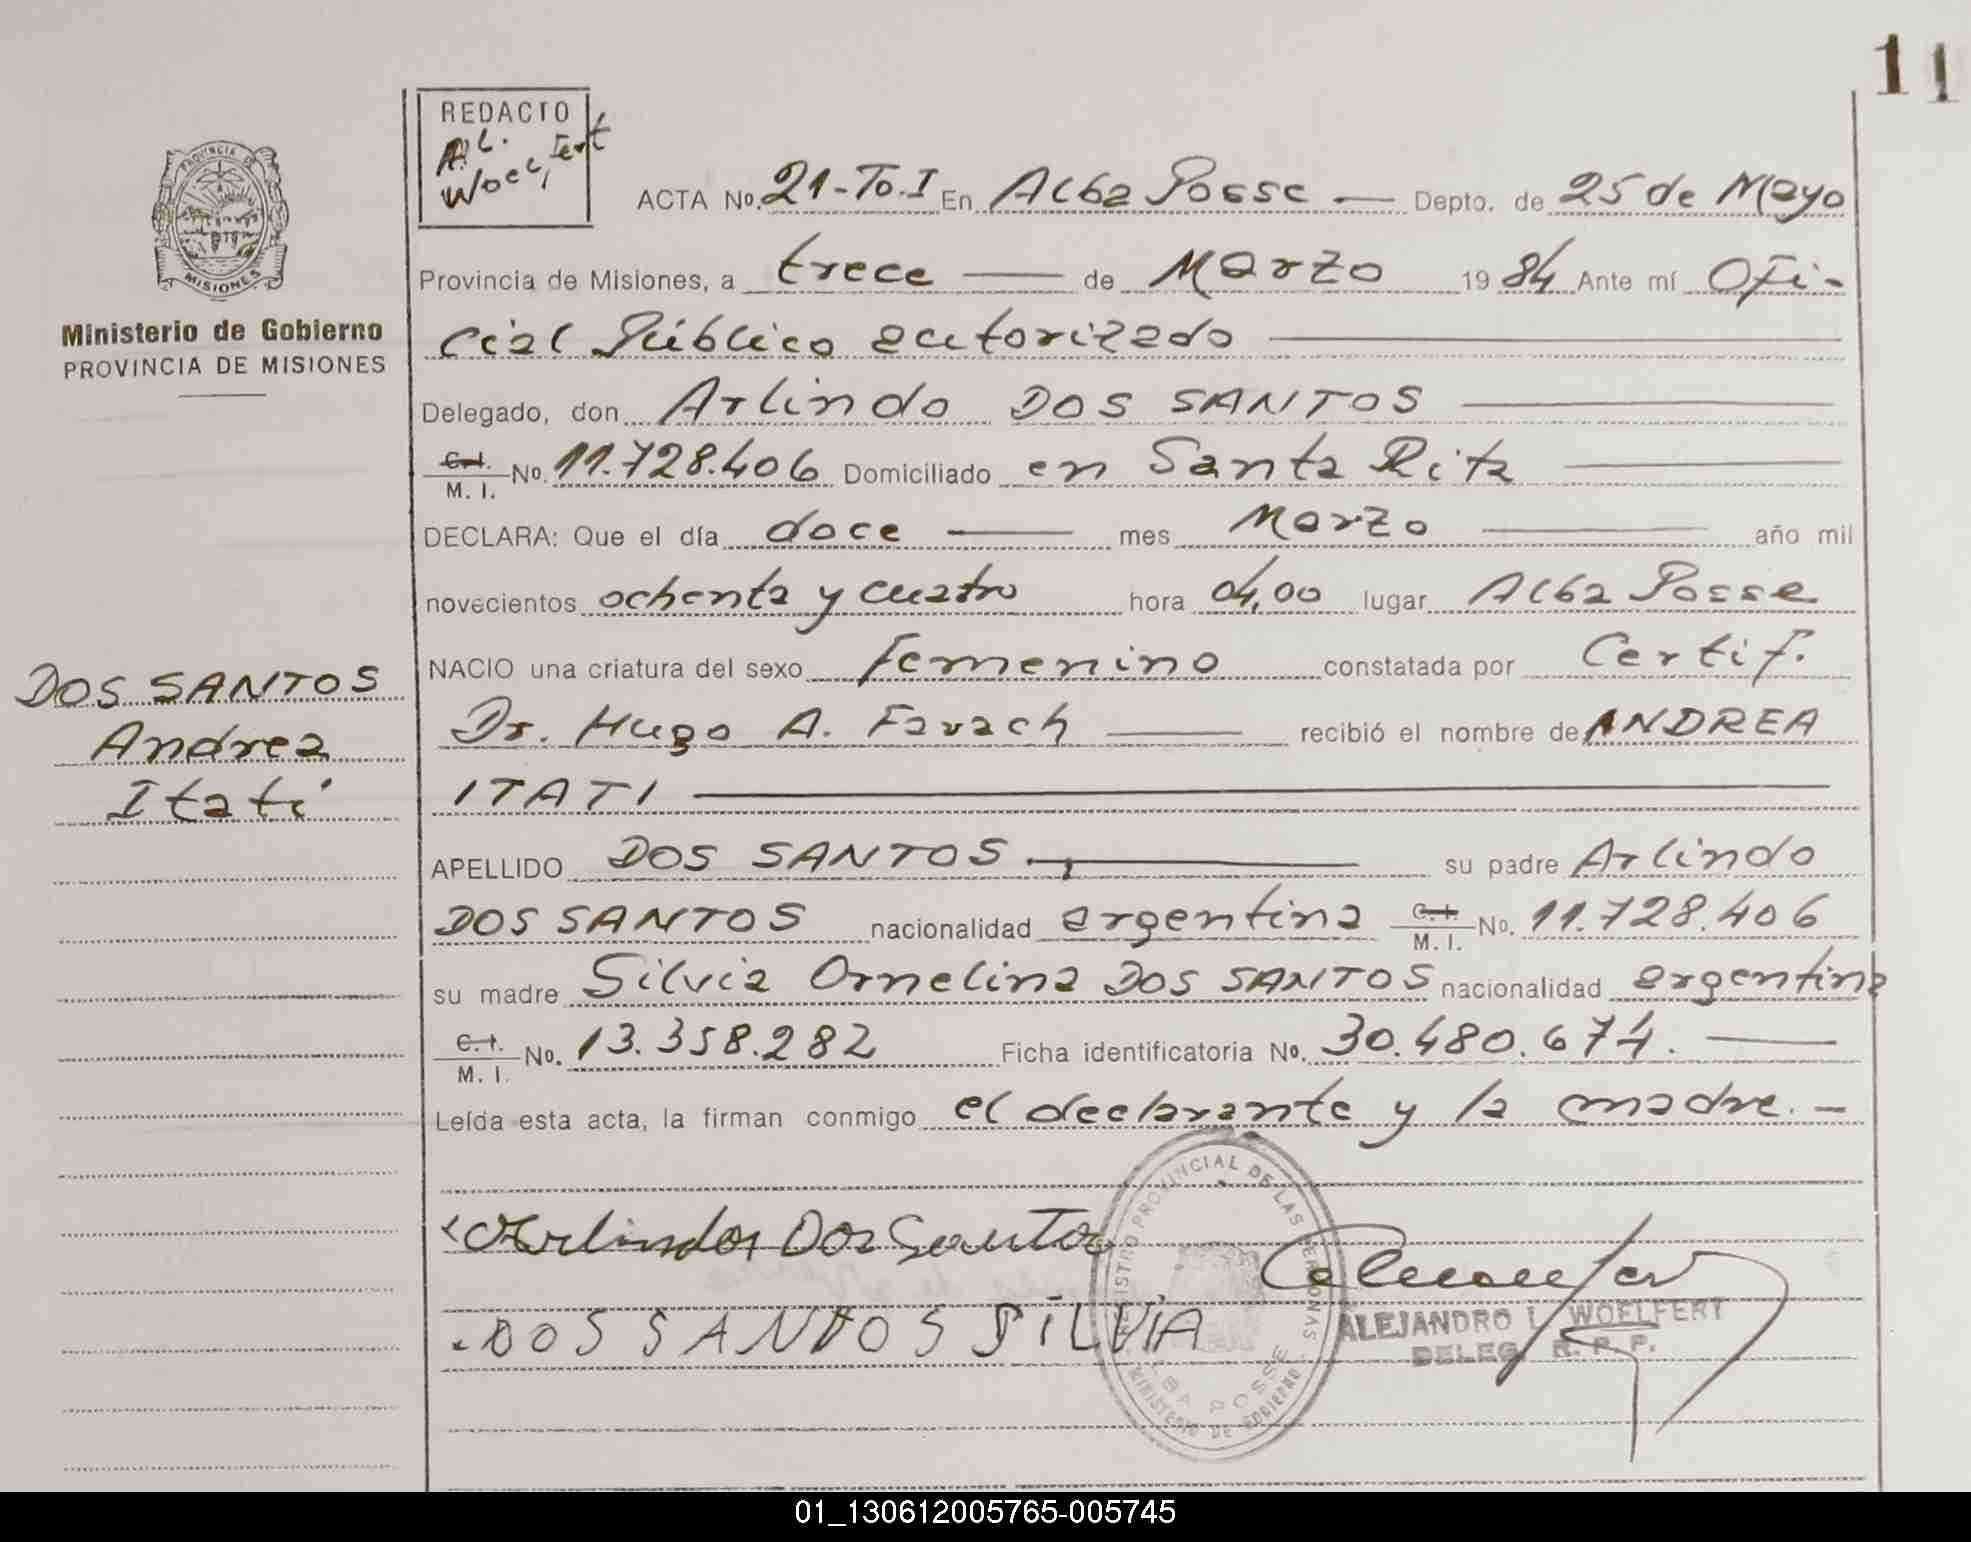 11
REDACTO
A. L.
Woelfert
PROVINCIA DE
MISIONES
Ministerio de Gobierno
PROVINCIA DE MISIONES
ACTA No. 21-To.I En Alba Posse — Depto. de 25 de Mayo
Provincia de Misiones, a trece — de Marzo 1984 Ante mí Ofi-
cial Público autorizado —
Delegado, don Arlindo DOS SANTOS —
C. I. / M. I. No. 11.728.406 Domiciliado en Santa Rita —
DECLARA: Que el día doce — mes Marzo — año mil
novecientos ochenta y cuatro hora 04,00 lugar Alba Posse
NACIO una criatura del sexo femenino constatada por Certif.
Dr. Hugo A. Favach — recibió el nombre de ANDREA
ITATI —
APELLIDO DOS SANTOS — su padre Arlindo
DOS SANTOS nacionalidad argentina C. I. / M. I. No. 11.728.406
su madre Silvia Ornelina DOS SANTOS nacionalidad argentina
C. I. / M. I. No. 13.358.282 Ficha identificatoria No. 30.480.674. —
Leída esta acta, la firman conmigo el declarante y la madre. —
DOS SANTOS
Andrea
Itatí
Arlindo Dos Santos
DOS SANTOS SILVIA
REGISTRO PROVINCIAL DE LAS PERSONAS
ALBA POSSE
MINISTERIO DE GOBIERNO
ALEJANDRO L. WOELFERT
DELEG. R. P. P.
01_130612005765-005745